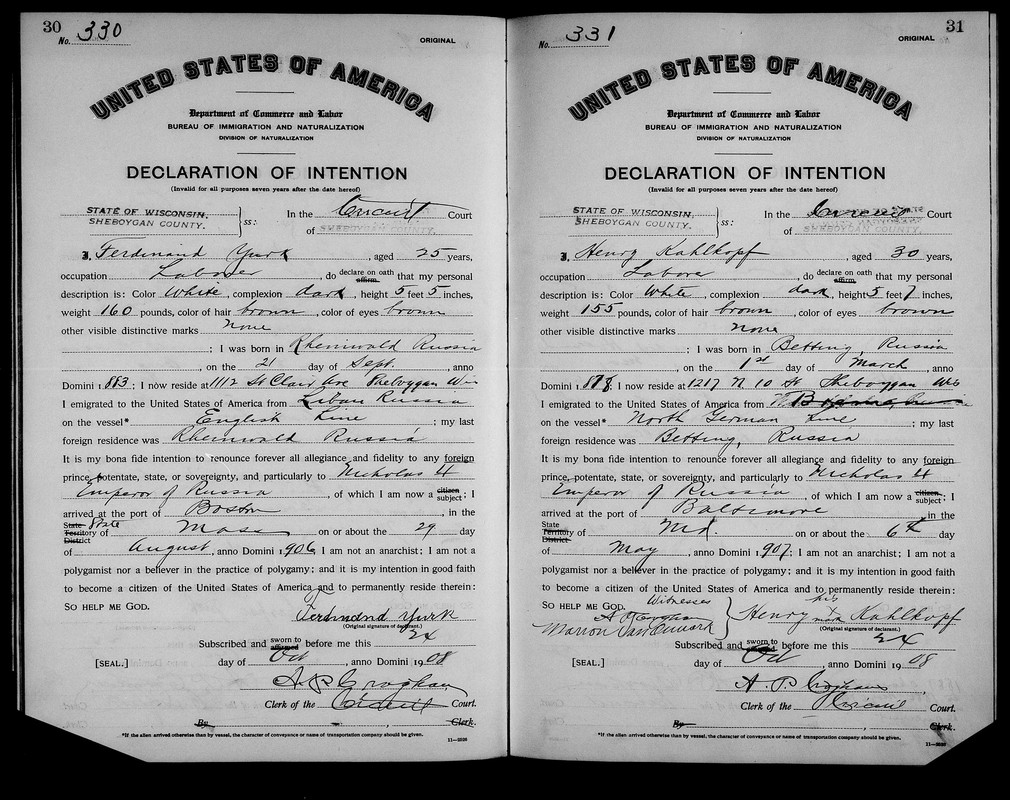 30
No. 330
ORIGINAL
UNITED STATES OF AMERICA
Department of Commerce and Labor
BUREAU OF IMMIGRATION AND NATURALIZATION
DIVISION OF NATURALIZATION
DECLARATION OF INTENTION
(Invalid for all purposes seven years after the date hereof)
STATE OF WISCONSIN,
SHEBOYGAN COUNTY.
ss:
In the Circuit Court
of SHEBOYGAN COUNTY.
I, Ferdinand Yurk, aged 25 years,
occupation Laborer, do declare on oath affirm that my personal
description is: Color White, complexion dark, height 5 feet 5 inches,
weight 160 pounds, color of hair brown, color of eyes brown
other visible distinctive marks none
; I was born in Rheinwald Russia
, on the 21 day of Sept., anno
Domini 1883; I now reside at 1112 St Clair Ave Sheboygan Wis
I emigrated to the United States of America from Libau Russia
on the vessel* English Line; my last
foreign residence was Rheinwald Russia
It is my bona fide intention to renounce forever all allegiance and fidelity to any foreign
prince, potentate, state, or sovereignty, and particularly to Nicholas II
Emperor of Russia, of which I am now a citizen subject; I
arrived at the port of Boston, in the
State Territory District of State Mass on or about the 29 day
of August, anno Domini 1906; I am not an anarchist; I am not a
polygamist nor a believer in the practice of polygamy; and it is my intention in good faith
to become a citizen of the United States of America and to permanently reside therein:
SO HELP ME GOD.
Ferdinand Yurk
(Original signature of declarant.)
Subscribed and sworn to affirmed before me this 24
[SEAL.] day of Oct, anno Domini 1908
A. P. Croghan
Clerk of the Circuit Court.
By , Clerk.
*If the alien arrived otherwise than by vessel, the character of conveyance or name of transportation company should be given.
11—2520
31
No. 331
ORIGINAL
UNITED STATES OF AMERICA
Department of Commerce and Labor
BUREAU OF IMMIGRATION AND NATURALIZATION
DIVISION OF NATURALIZATION
DECLARATION OF INTENTION
(Invalid for all purposes seven years after the date hereof)
STATE OF WISCONSIN,
SHEBOYGAN COUNTY.
ss:
In the Circuit Court
of SHEBOYGAN COUNTY.
I, Henry Kahlkopf, aged 30 years,
occupation Labore, do declare on oath affirm that my personal
description is: Color White, complexion dark, height 5 feet 7 inches,
weight 155 pounds, color of hair brown, color of eyes brown
other visible distinctive marks none
; I was born in Betting Russia
, on the 1st day of March, anno
Domini 1878; I now reside at 1217 N 10 St Sheboygan Wis
I emigrated to the United States of America from
on the vessel* North German Line; my last
foreign residence was Betting, Russia
It is my bona fide intention to renounce forever all allegiance and fidelity to any foreign
prince, potentate, state, or sovereignty, and particularly to Nicholas II
Emperor of Russia, of which I am now a citizen subject; I
arrived at the port of Baltimore, in the
State Territory District of Md. on or about the 6th day
of May, anno Domini 1907; I am not an anarchist; I am not a
polygamist nor a believer in the practice of polygamy; and it is my intention in good faith
to become a citizen of the United States of America and to permanently reside therein:
SO HELP ME GOD. Witnesses
A P Croghan
Marion
Henry his x mark Kahlkopf
(Original signature of declarant.)
Subscribed and sworn to affirmed before me this 24
[SEAL.] day of Oct, anno Domini 1908
A. P. Croghan
Clerk of the Circuit Court.
By , Clerk.
*If the alien arrived otherwise than by vessel, the character of conveyance or name of transportation company should be given.
11—2520